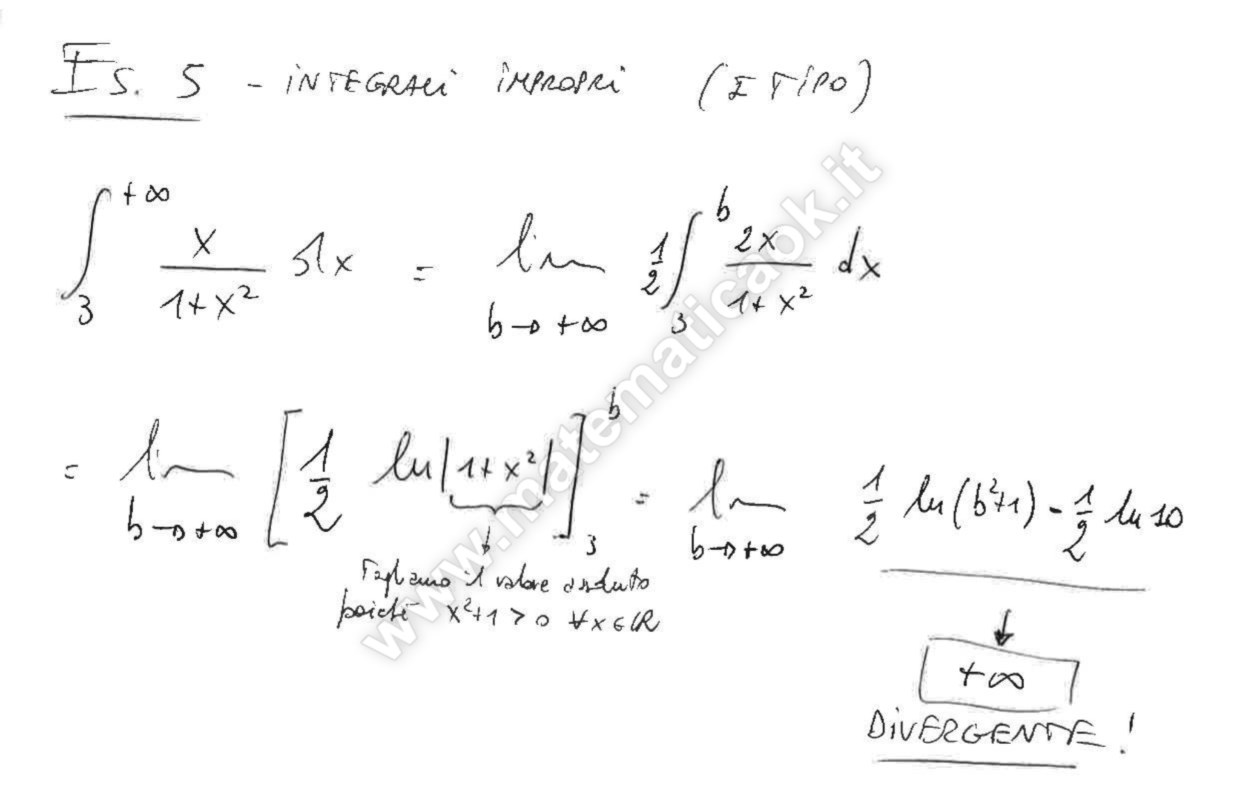 Es. 5 - INTEGRALI IMPROPRI (I TIPO)
∫₃^{+∞} x/(1+x²) dx = lim_{b→+∞} 1/2 ∫₃^b 2x/(1+x²) dx
= lim_{b→+∞} [1/2 ln|1+x²|]₃^b = lim_{b→+∞} 1/2 ln(b²+1) - 1/2 ln 10
Togliamo il valore assoluto
poiché x²+1 > 0 ∀x∈ℝ
+∞
DIVERGENTE!
www.matematicaok.it